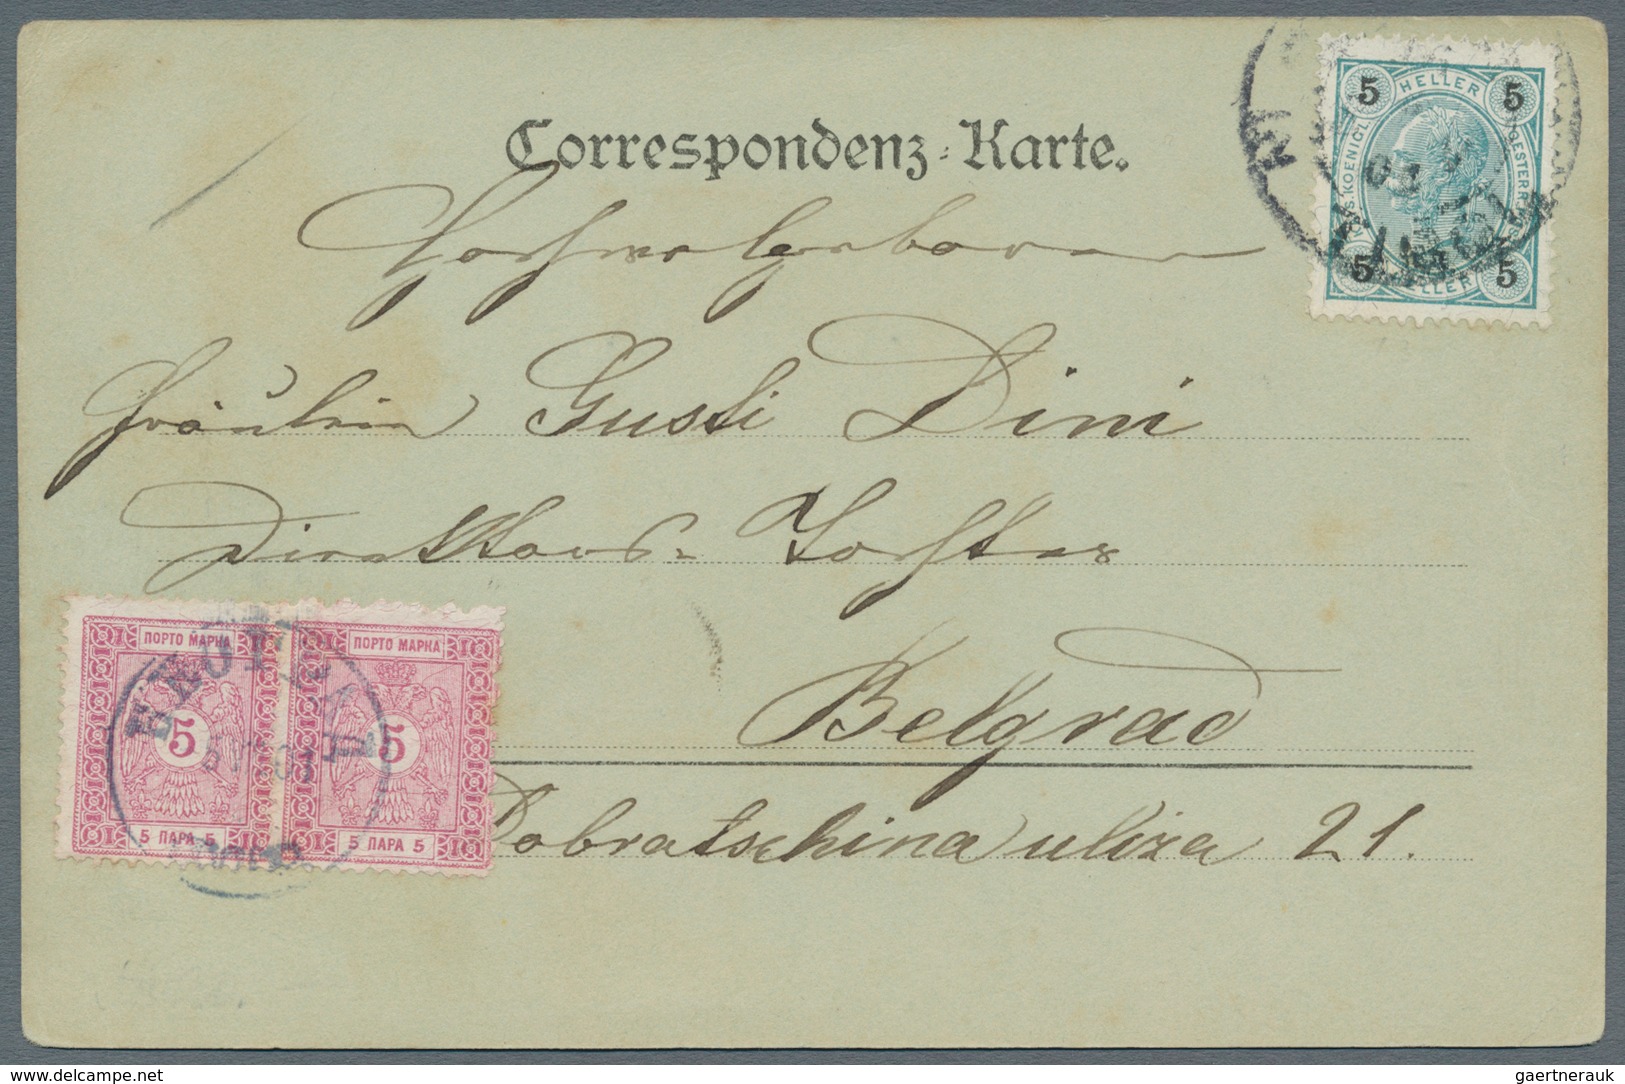 Correspondenz-Karte.
5 HELLER 5
5 HELLER 5
Hochwolgeboren
Fräulein Gusti Dini
Direktors-Tochter
ПОРТО МАРКА ПОРТО МАРКА
5 5
5 ПАРА 5 5 ПАРА 5
Belgrad
Dobratschina uliza 21.
www.delcampe.net
gaertnerauk